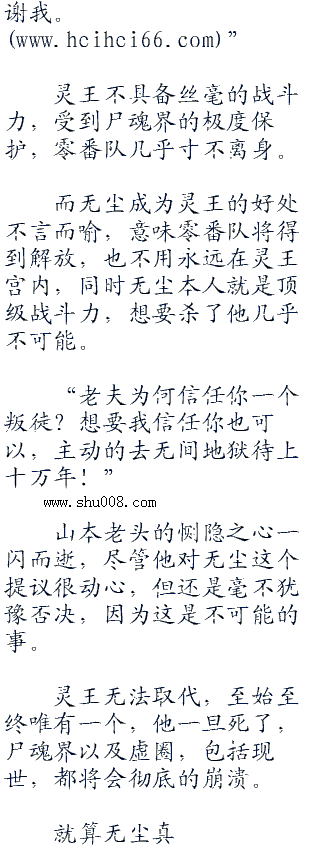 谢我。
(www.hcihci66.com)”
灵王不具备丝毫的战斗
力，受到尸魂界的极度保
护，零番队几乎寸不离身。
而无尘成为灵王的好处
不言而喻，意味零番队将得
到解放，也不用永远在灵王
宫内，同时无尘本人就是顶
级战斗力，想要杀了他几乎
不可能。
“老夫为何信任你一个
叛徒？想要我信任你也可
以，主动的去无间地狱待上
十万年！”
www.shu008.com
山本老头的恻隐之心一
闪而逝，尽管他对无尘这个
提议很动心，但还是毫不犹
豫否决，因为这是不可能的
事。
灵王无法取代，至始至
终唯有一个，他一旦死了，
尸魂界以及虚圈，包括现
世，都将会彻底的崩溃。
就算无尘真